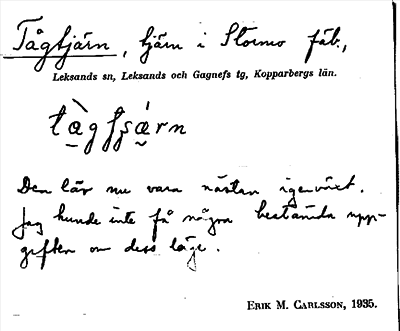 Tågtjärn, tjärn i Stormo fäb.,
Leksands sn, Leksands och Gagnefs tg, Kopparbergs län.
Den lär nu vara nästan igenväxt.
Jag kunde inte få några bestämda upp-
gifter om dess läge.
ERIK M. CARLSSON, 1935.